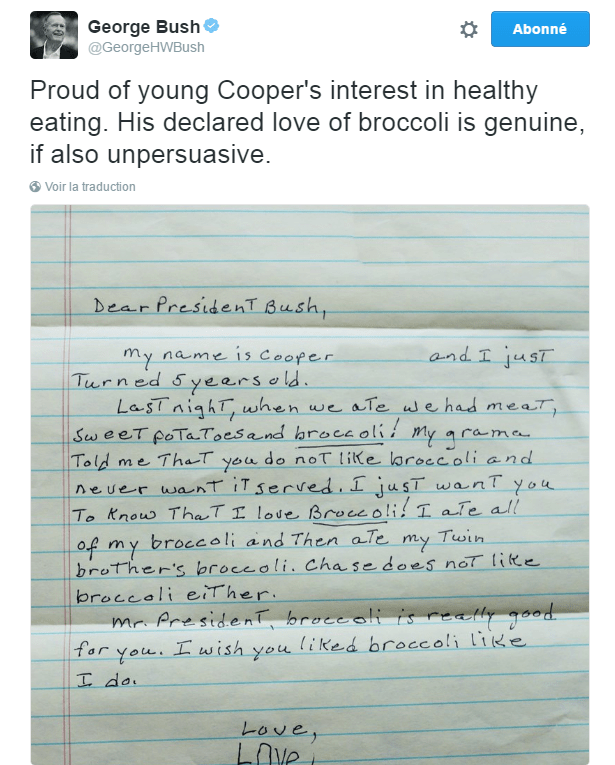 George Bush
@GeorgeHWBush
Abonné
Proud of young Cooper's interest in healthy
eating. His declared love of broccoli is genuine,
if also unpersuasive.
Voir la traduction
Dear President Bush,
My name is Cooper and I just
Turned 5 years old.
Last night, when we ate we had meat,
sweet potatoes and broccoli! My grama
Told me That you do not like broccoli and
never want it served. I just want you
To know That I love Broccoli! I ate all
of my broccoli and Then ate my Twin
brother's broccoli. Chase does not like
broccoli either.
Mr. President, broccoli is really good
for you. I wish you liked broccoli like
I do.
Love,
Love,